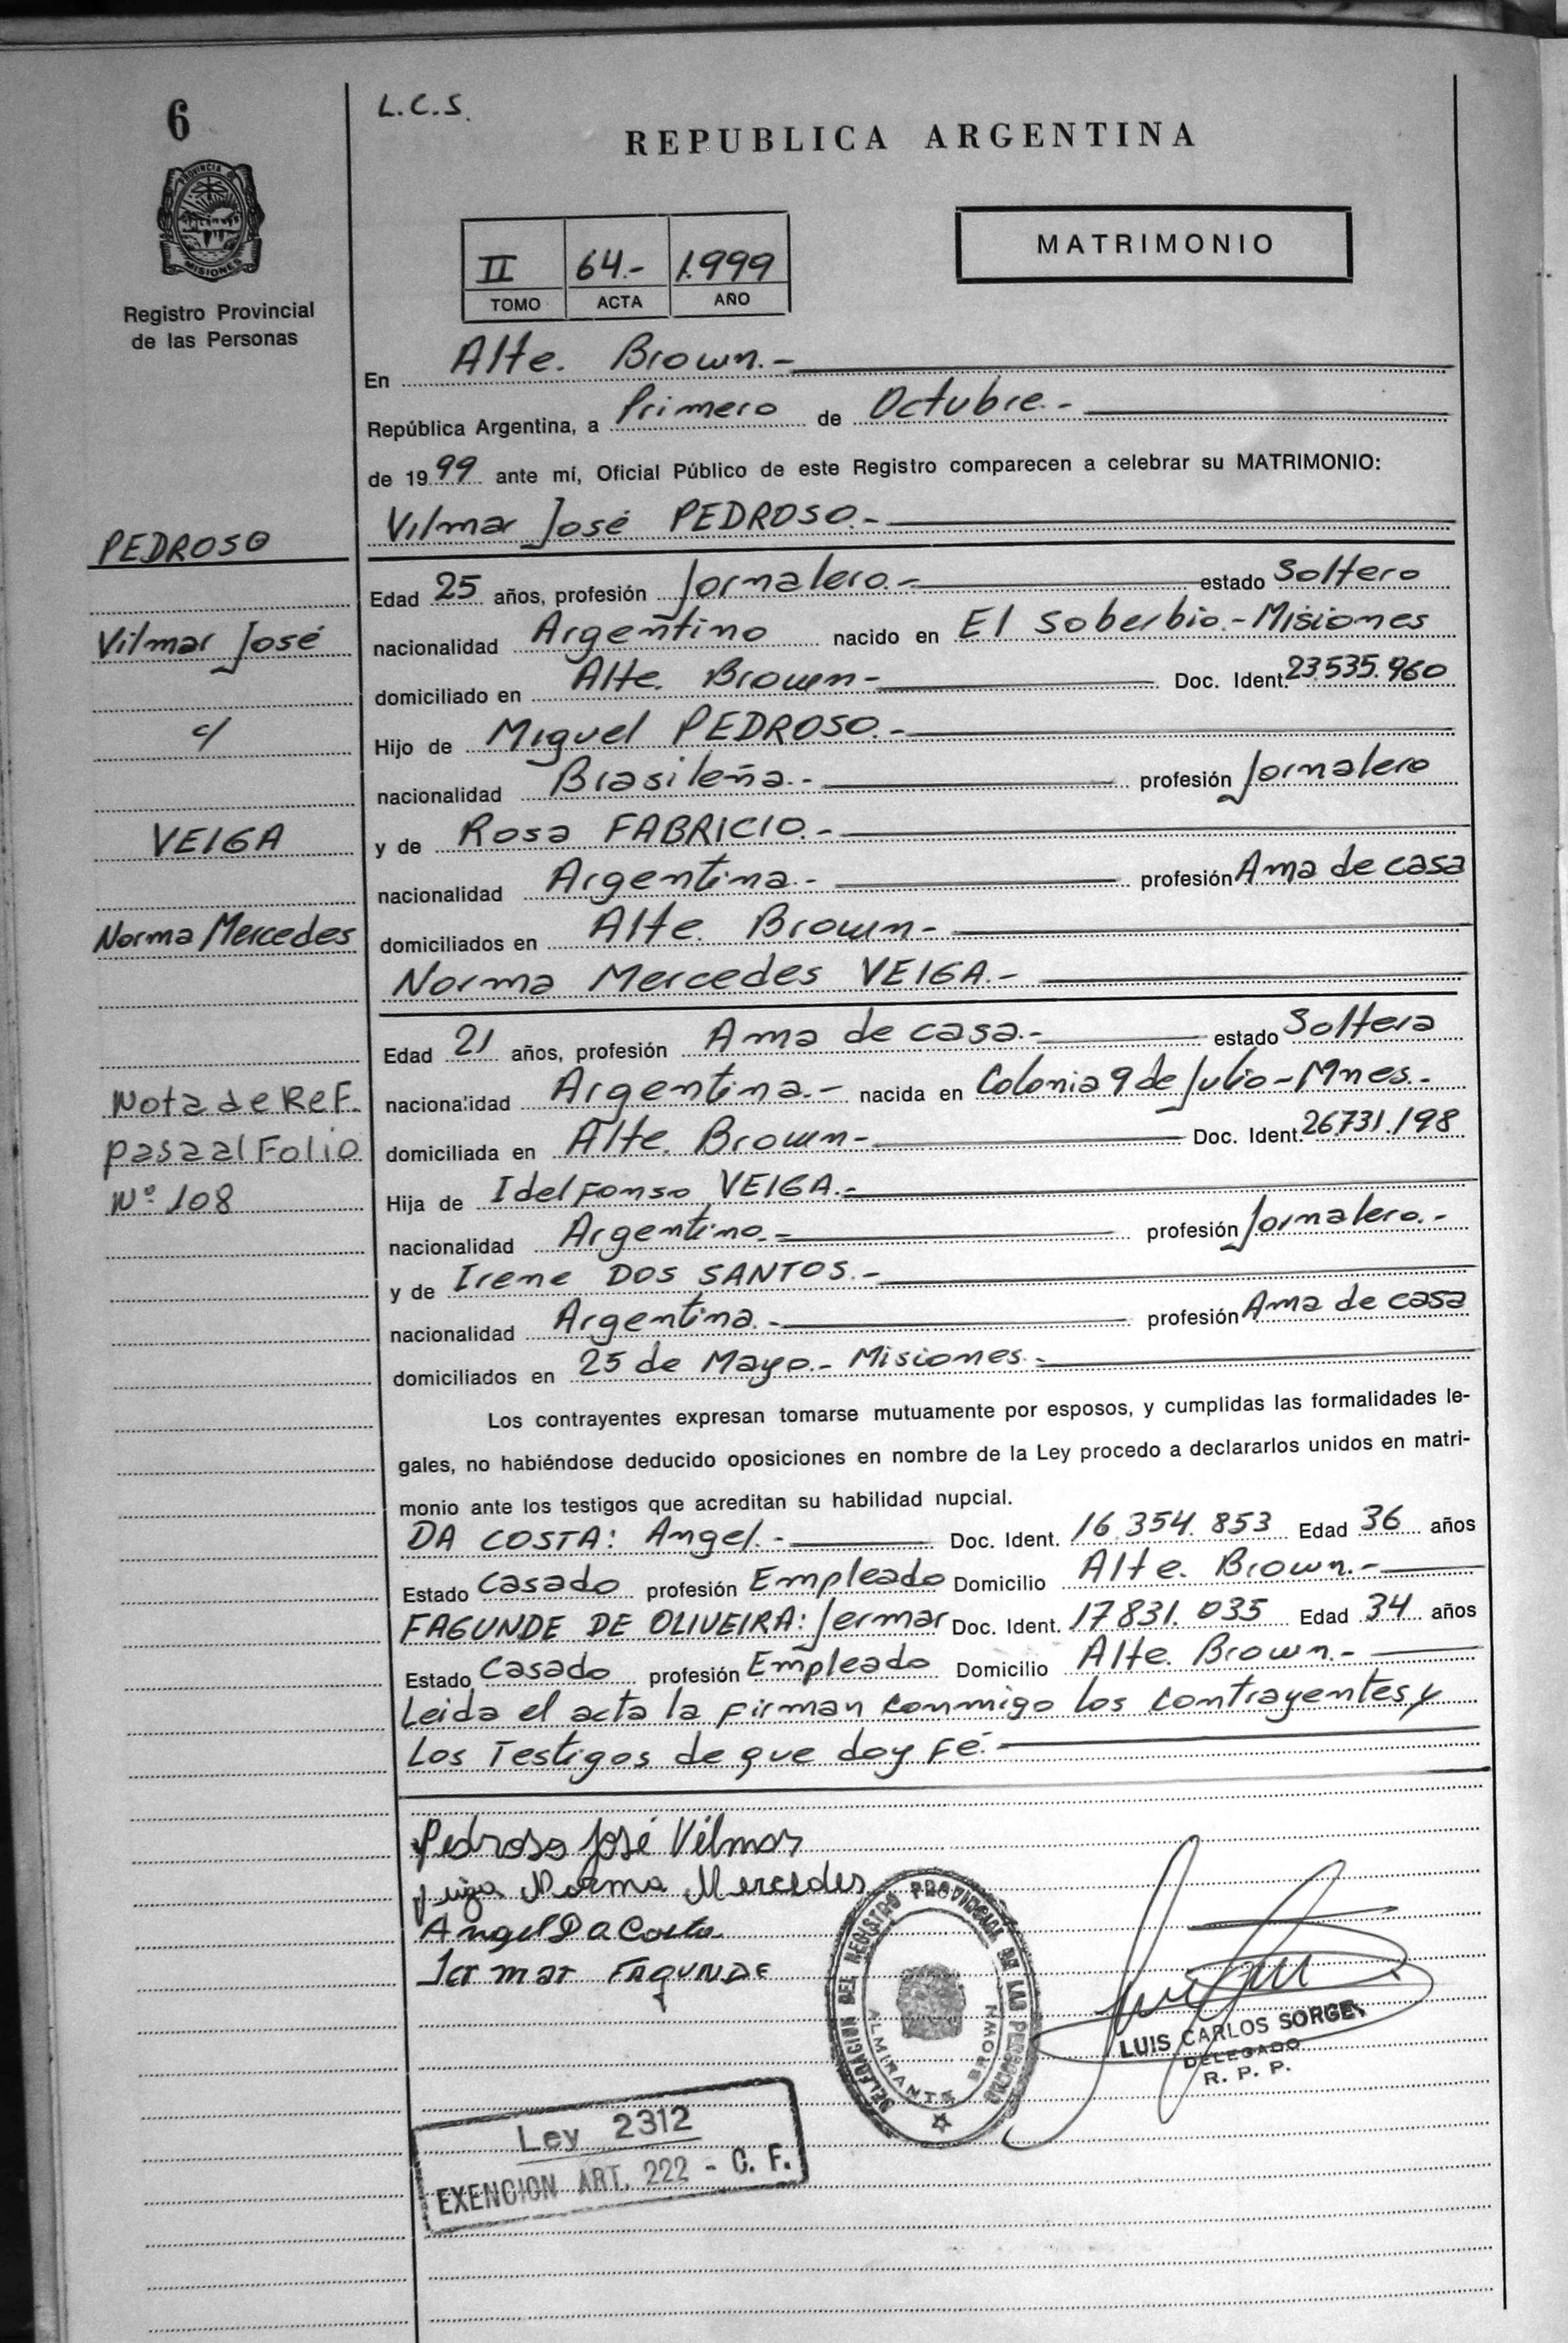 6
L.C.S.
REPUBLICA ARGENTINA
PROVINCIA DE
MISIONES
Registro Provincial
de las Personas
MATRIMONIO
II 64.- 1.999
TOMO ACTA AÑO
En Alte. Brown.-
República Argentina, a Primero de Octubre.-
de 1999 ante mí, Oficial Público de este Registro comparecen a celebrar su MATRIMONIO:
Vilmar José PEDROSO.-
PEDROSO
Edad 25 años, profesión Jornalero.- estado Soltero
Vilmar José
nacionalidad Argentino nacido en El Soberbio.-Misiones
domiciliado en Alte. Brown- Doc. Ident. 23.535.960
c/
Hijo de Miguel PEDROSO.-
nacionalidad Brasileña.- profesión Jornalero
VEIGA
y de Rosa FABRICIO.-
nacionalidad Argentina.- profesión Ama de casa
Norma Mercedes
domiciliados en Alte. Brown-
Norma Mercedes VEIGA.-
Edad 21 años, profesión Ama de casa.- estado Soltera
Nota de Ref.
nacionalidad Argentina.- nacida en Colonia 9 de Julio-Mnes.-
pasa al Folio
domiciliada en Alte. Brown- Doc. Ident. 26731.198
Nº 108
Hija de Idelfonso VEIGA.-
nacionalidad Argentino.- profesión Jornalero.-
y de Irene DOS SANTOS.-
nacionalidad Argentina.- profesión Ama de casa
domiciliados en 25 de Mayo.- Misiones.-
Los contrayentes expresan tomarse mutuamente por esposos, y cumplidas las formalidades le-
gales, no habiéndose deducido oposiciones en nombre de la Ley procedo a declararlos unidos en matri-
monio ante los testigos que acreditan su habilidad nupcial.
DA COSTA: Angel.- Doc. Ident. 16.354.853 Edad 36 años
Estado Casado profesión Empleado Domicilio Alte. Brown.-
FAGUNDE DE OLIVEIRA: Jermar Doc. Ident. 17831.035 Edad 34 años
Estado Casado profesión Empleado Domicilio Alte. Brown.-
Leida el acta la firman conmigo los contrayentes y
Los Testigos de que doy Fé.-
Pedroso José Vilmar
Norma Mercedes
Angel Da Costa
Jermar FAGUNDE
DELEGACION DEL REGISTRO PROVINCIAL DE LAS PERSONAS
ALMIRANTE BROWN
LUIS CARLOS SORGE
DELEGADO
R. P. P.
Ley 2312
EXENCION ART. 222 - C. F.